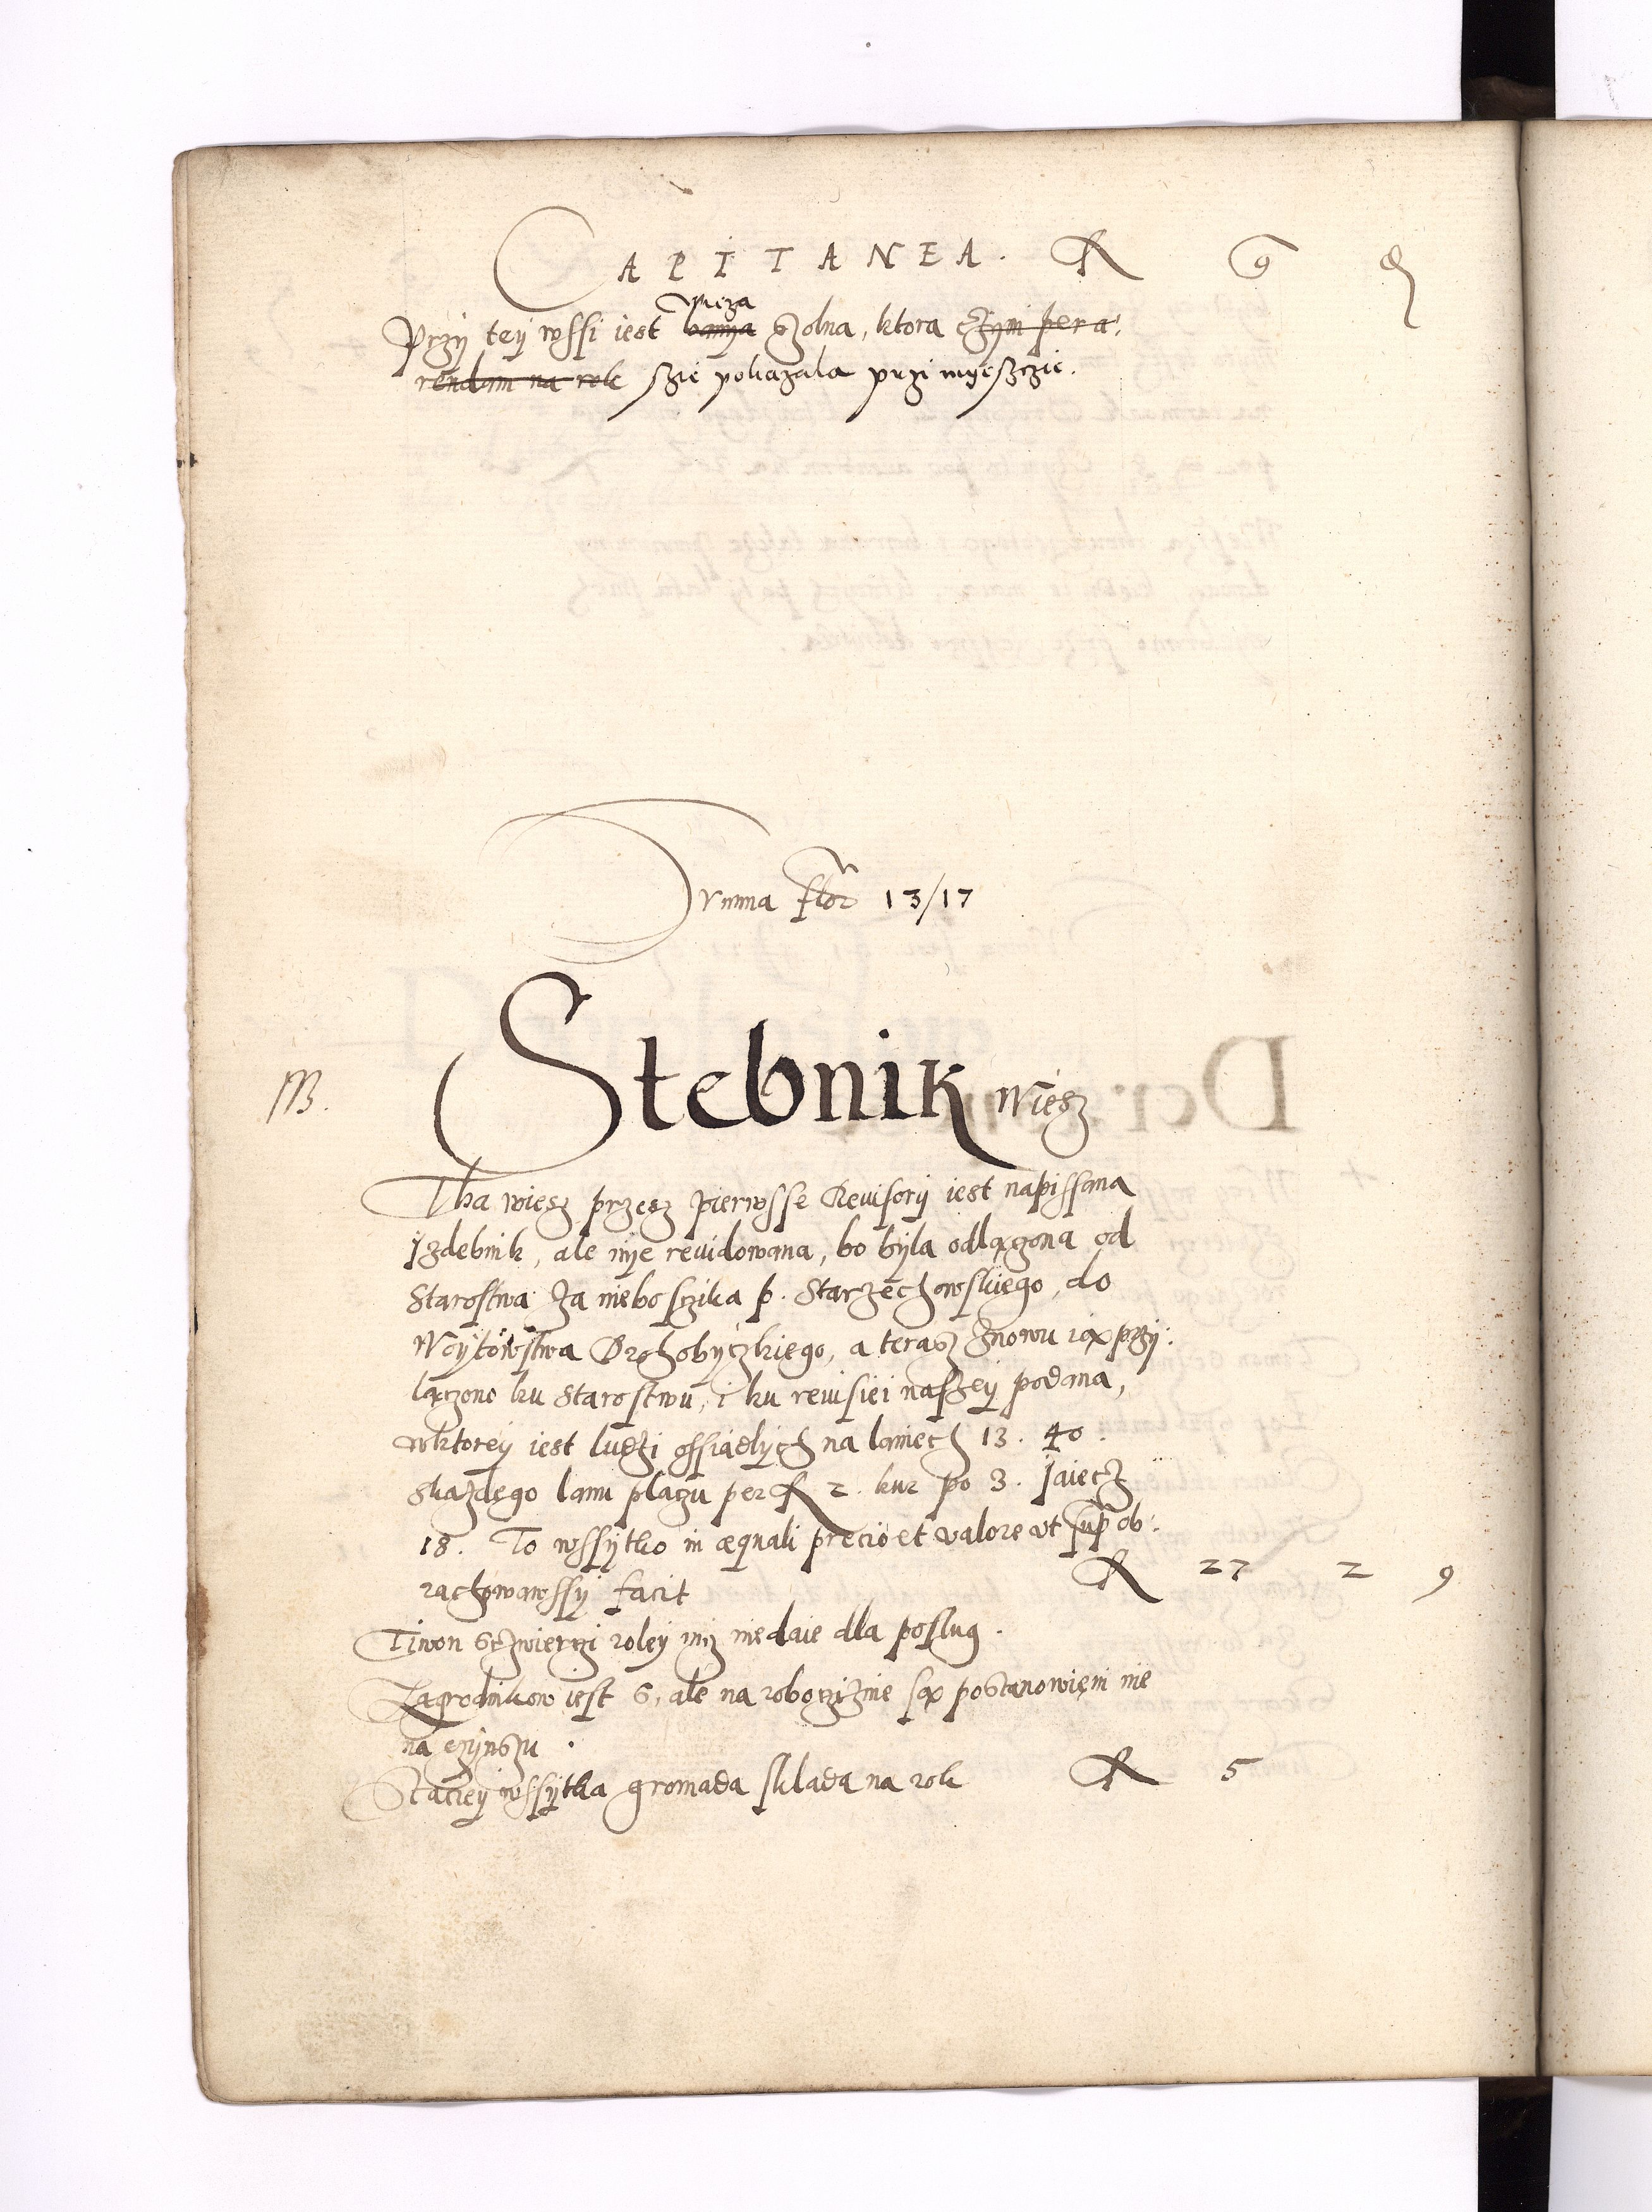 CAPITANEA. R 9
Przÿ teÿ wssi iest banÿa wieza Solna, ktora czÿni per a:
rendam na rok szie pokazala przi myesczie.
Summa flor 13/17
Stebnik Wiesz
Tha wiesz przesz pierwsse Revisorÿ iest napissana
Izdebnik, ale nÿe revidowana, bo bÿla odlązona od
Starostwa za nieboszczika p. Starzechowskiego, do
Woÿtowstwa Drohobyczkiego, a terasz znowu ią przÿ:
łączono ku Starostwu, i ku revisiei naszeÿ podana,
wktoreÿ iest ludzi ossiadlÿch na laniech 13. 40.
Skazdego lanu placzu per R 2. kur po 3. Jaiecz
18. To wssÿtko in æquali precio et valore ut sup ob:
rachowawssÿ facit R 27 2 9
Tiwon Sczwierczi roleÿ nic niedaie dla poslug.
Zagrodnikow iest 6, ale na roboczizne są postanowieni nie
na czÿnszu.
Stacieÿ wssÿtka gromada sklada na rok R 5